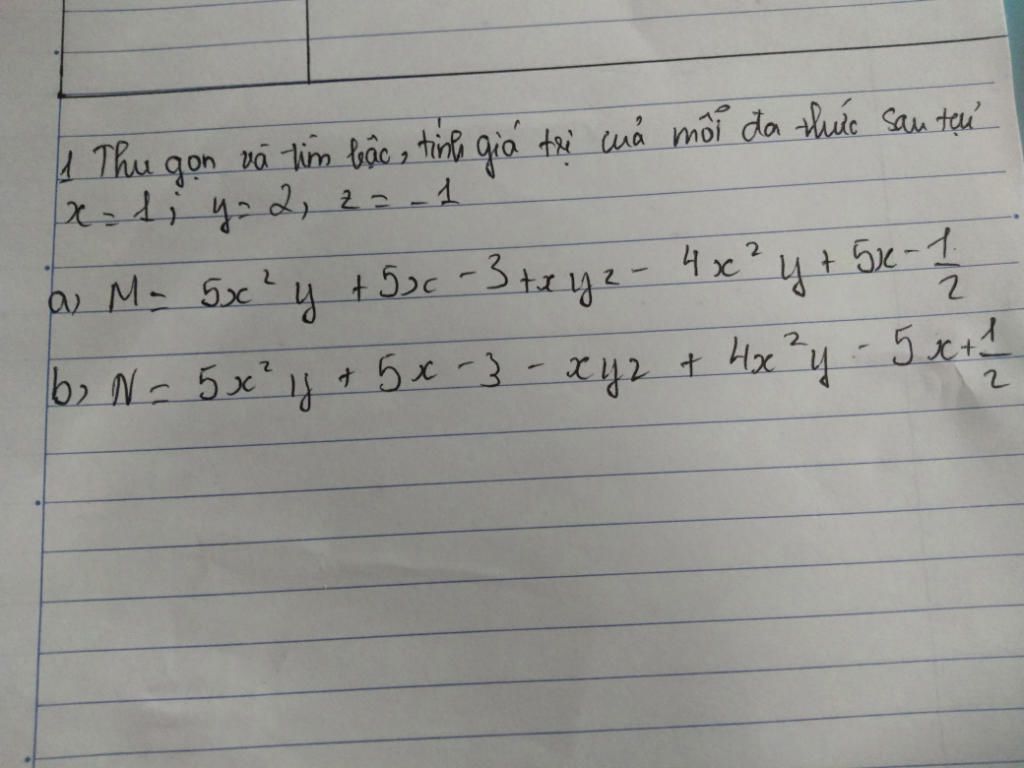 1 Thu gọn và tìm bậc, tính giá trị của mỗi đa thức sau tại
x = 1; y = 2, z = -1
a, M = 5x² y + 5x - 3 + xyz - 4x² y + 5x - 1/2
b, N = 5x² y + 5x - 3 - xyz + 4x²y - 5x + 1/2